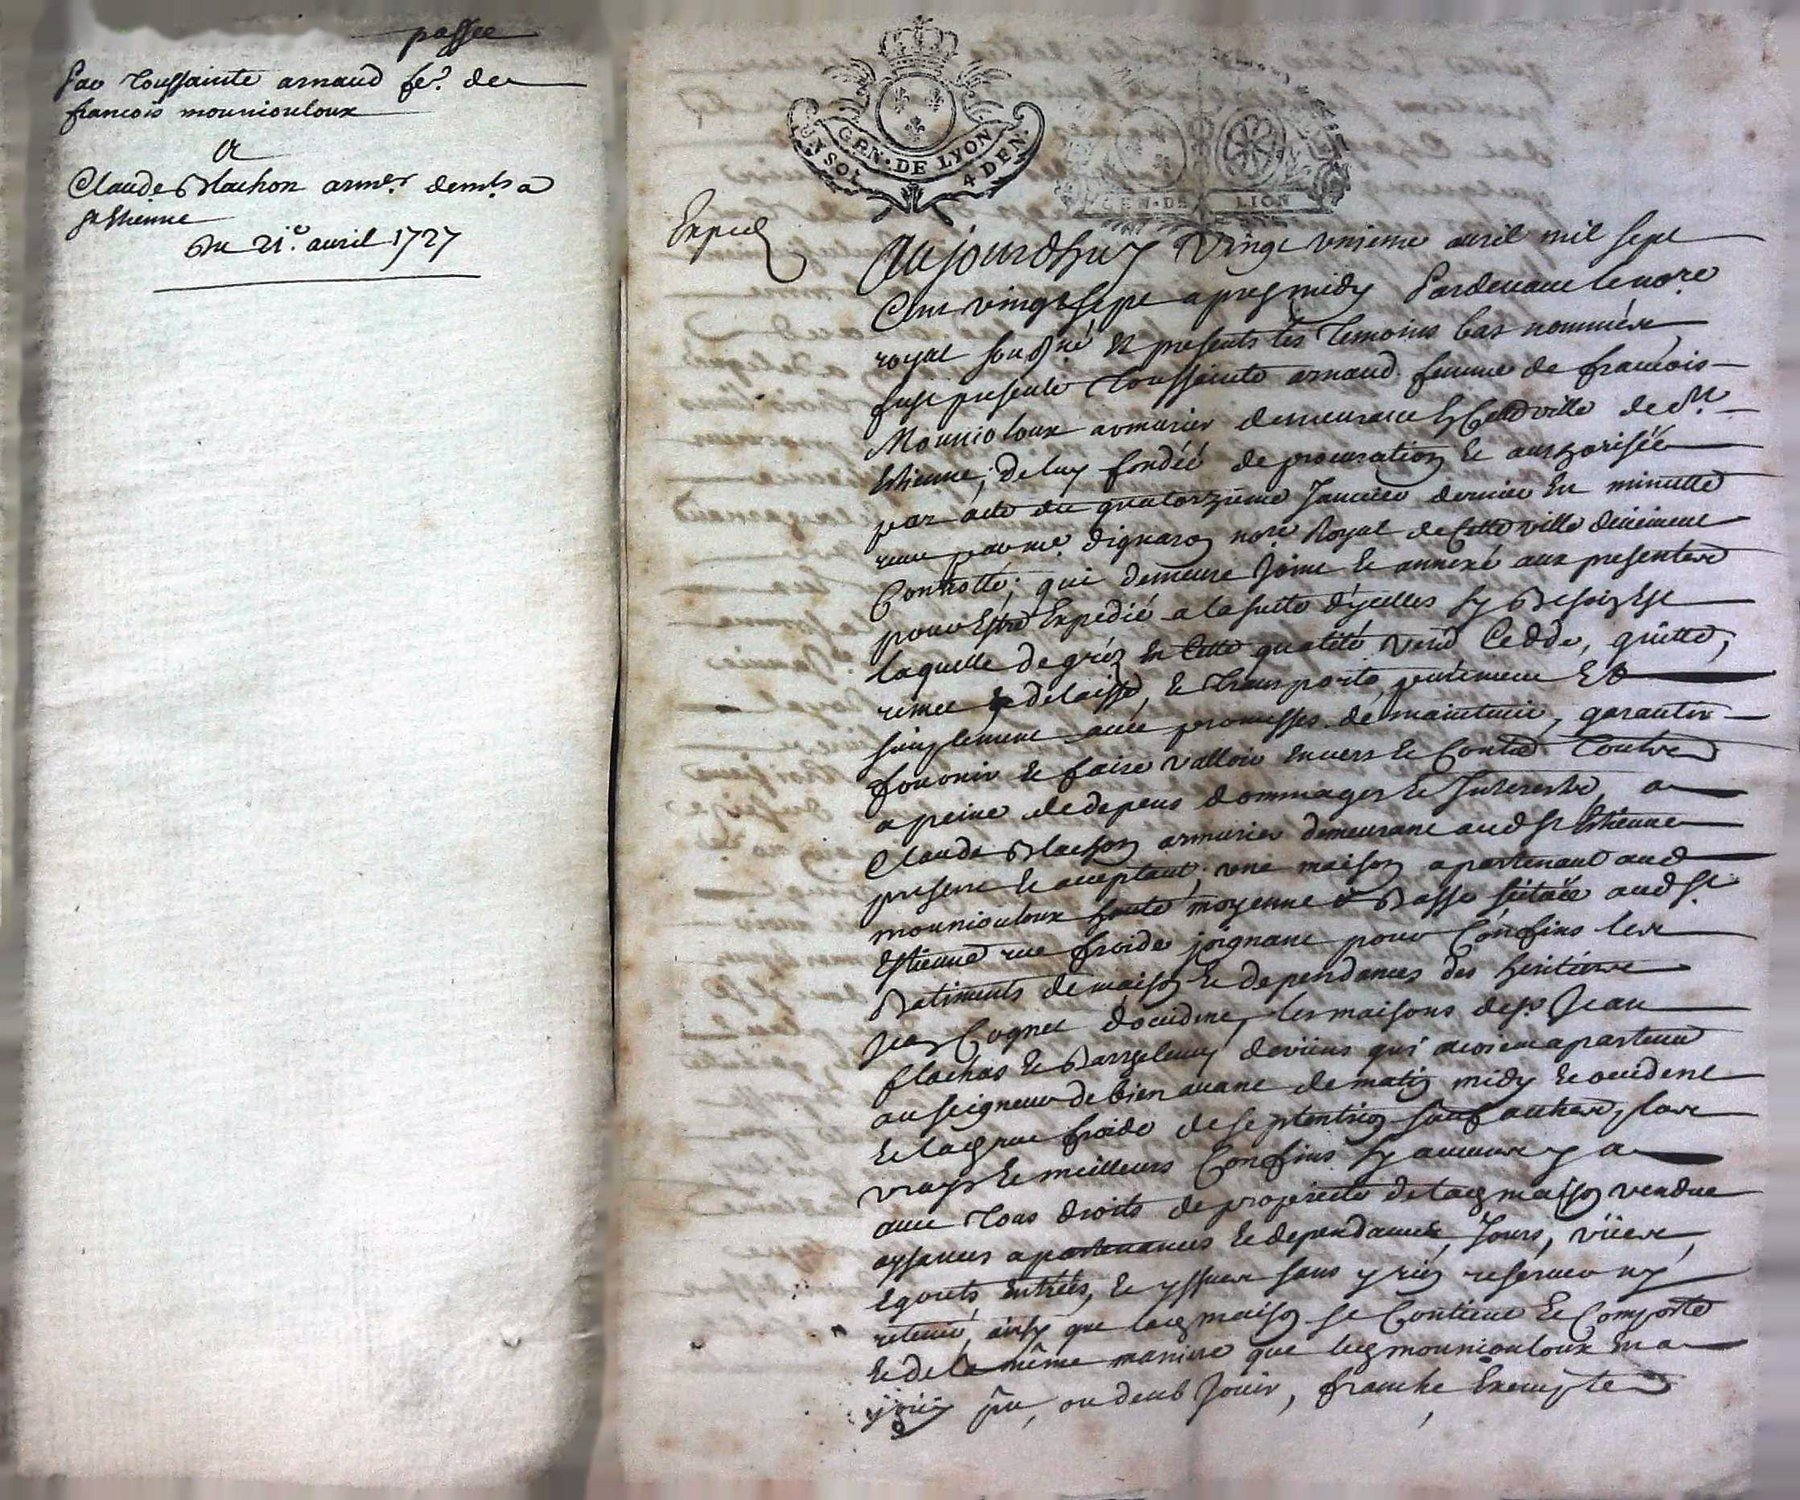 passée
Par Toussainte arnaud fe. de
francois mouniouloux
A
Claude Blachon armer. demt. a
St Etienne
Du 21e. avril 1727
GEN. DE LYON
UN SOL 4 DEN.
GEN. DE LION
Exped
Aujourdhuy vingt unieme avril mil sept
Cent vingt sept apres midy Pardevant le nore
royal sousigné et presents les temoins bas nommées
fust presente Toussainte arnaud femme de francois
Mounioloux armurier demeurant en cette ville de St
Etienne, de luy fondée de procuration et authorisée
par acte du quatorzieme Janvier dernier en minutte
receu par me. dignaron nore Royal de cette ville deüement
Controllé; qui demeure joint et annexé aux presentes
pour Estre Expedié a la suite d'ycelles sy Besoin Est
laquelle de gré en cette qualité vend Cedde, quitte,
remet et delaisse, et transporte purement Et
simplement avec promesses de maintenir, garantir
fournir et faire valloir envers et Contre toutes
a peine de depens dommages et Interests, a
Claude Blachon armurier demeurant aud St Etienne
present et acceptant, une maison apartenant aud
mouniouloux haute moyenne et Basse scituée aud St.
Estienne rue froide joignant pour Confins les
Batiments de maison et dependances des heritiers
Jean Cognet d'occident, les maisons de sr. Jean
flachas et Barthelemy deviens qui avoient apartenu
au seigneur de bien avant de matin midy et occident
et lad rue froide de septentrion sauf authres, leurs
vrays et meilleurs Confins sy aucuns y a
avec tous droits de proprieté de lad maison vendue
aysances apartenances et dependances, Jours, vües,
Egouts Entrées, et yssues sans y rien reserver ny
retenir, ainsy que lad maison se Contient et Comporte
et de la même maniere que led mouniouloux en a
joüy pû, ou deub Jouir, franche, Exempte